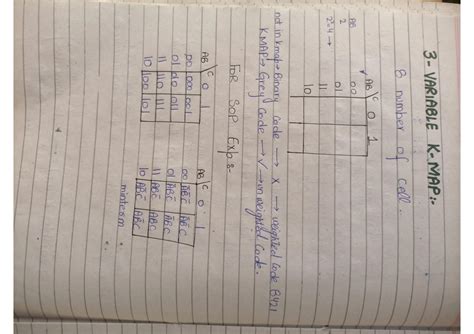 3-VARIABLE K-MAP:-
8 number of cell.
AB\C 0 1
AB 00
2 01
2=4→ 11
10
not in kmap→ Binary Code → X → weighted Code 8421
KMAP→ Grey Code → ✓ → unweighted Code.
FOR SOP Exp:-
AB\C 0 1
00 000 001
01 010 011
11 110 111
10 100 101
AB\C 0 1
00
01
11
10
minterm